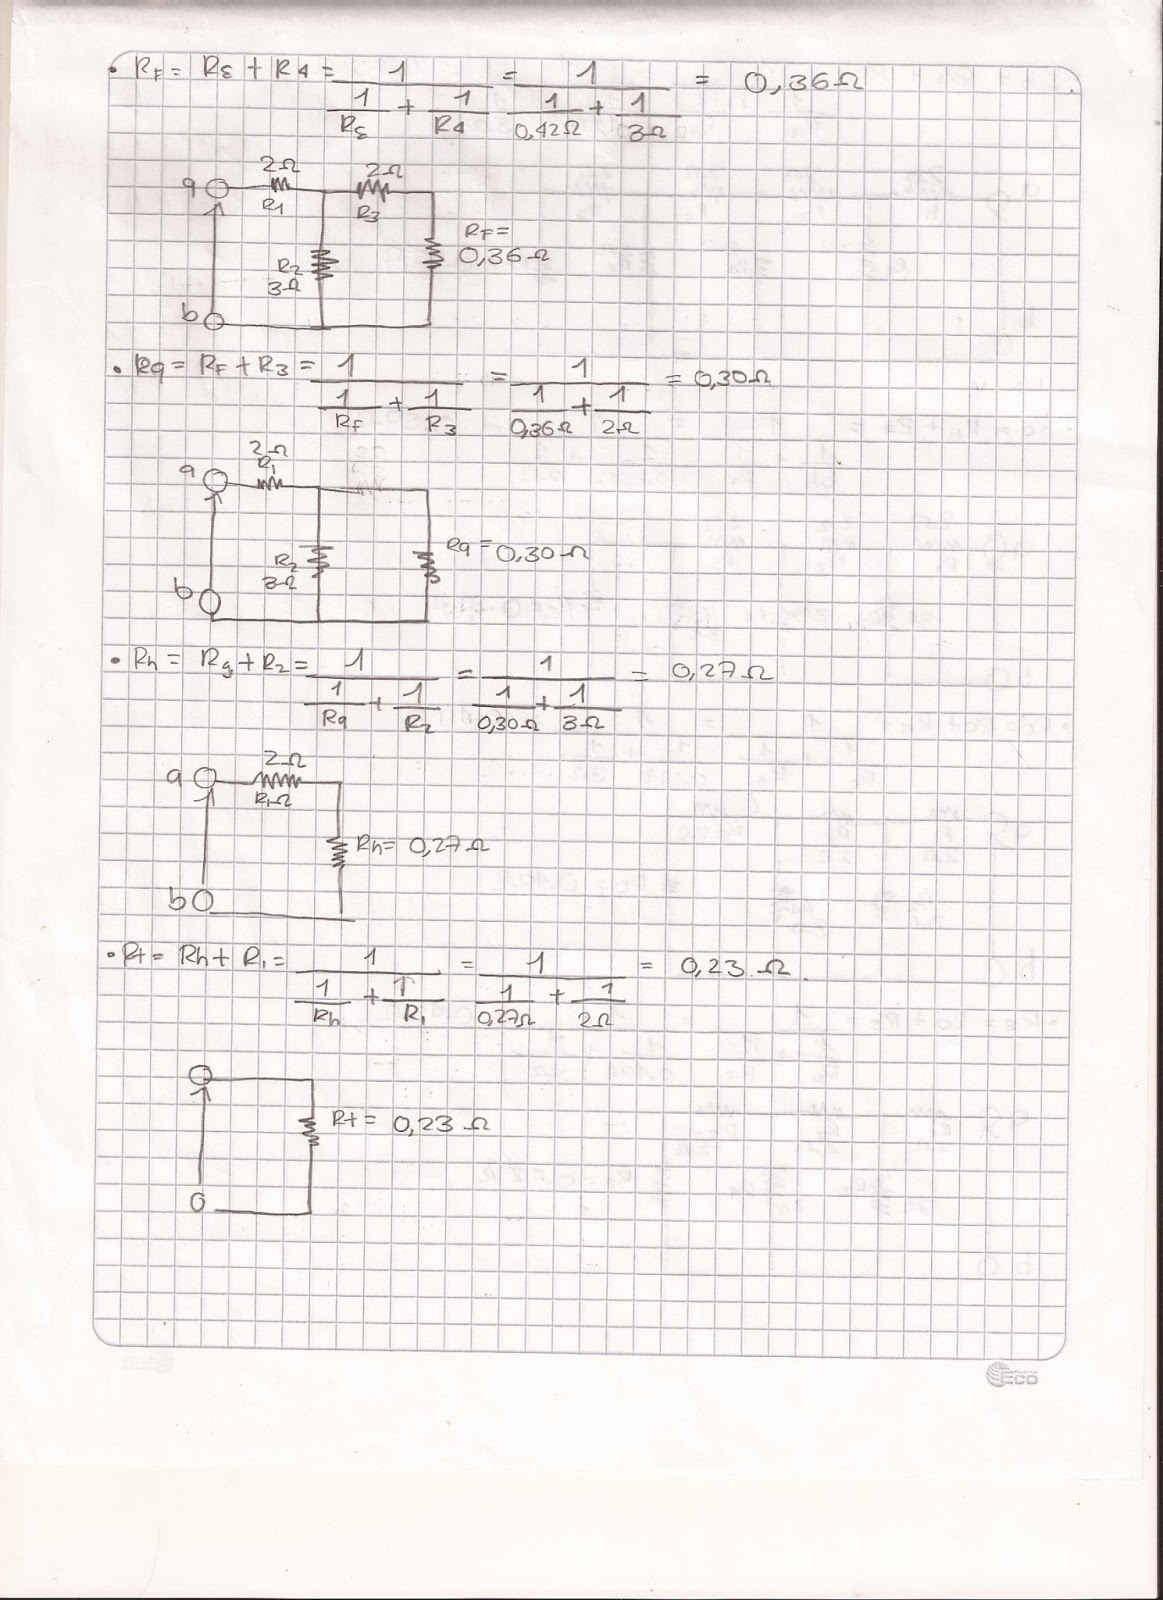 • RF = Rε + R4 = 1 / (1/Rε + 1/R4) = 1 / (1/0,42Ω + 1/3Ω) = 0,36Ω
2Ω 2Ω
a R1 R3
RF =
R2 0,36Ω
3Ω
b
• Rg = RF + R3 = 1 / (1/RF + 1/R3) = 1 / (1/0,36Ω + 1/2Ω) = 0,30Ω
2Ω
a R1
R2 Rg = 0,30Ω
3Ω
b
• Rh = Rg + R2 = 1 / (1/Rg + 1/R2) = 1 / (1/0,30Ω + 1/3Ω) = 0,27Ω
2Ω
a
R1Ω
Rh = 0,27Ω
b
• Rt = Rh + R1 = 1 / (1/Rh + 1/R1) = 1 / (1/0,27Ω + 1/2Ω) = 0,23Ω
Rt = 0,23Ω
ECO